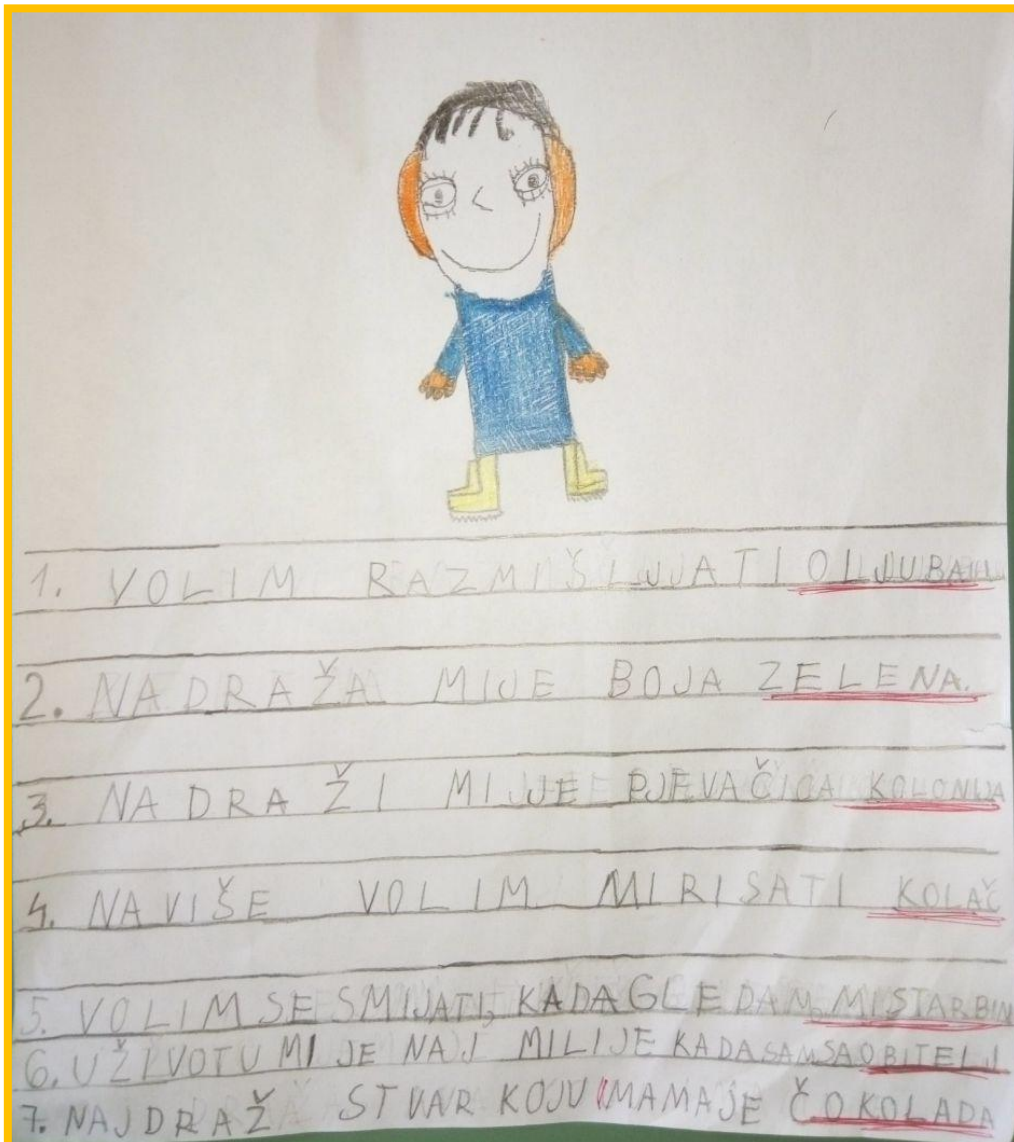 1. VOLIM RAZMIŠLJATI O LJUBAVI
2. NADRAŽA MIJE BOJA ZELENA.
3. NADRAŽI MIJE PJEVAČICA KOLONIJA
4. NAVIŠE VOLIM MIRISATI KOLAČ
5. VOLIM SE SMIJATI, KADA GLEDAM MISTARBIN
6. U ŽIVOTU MI JE NAJ MILIJE KADA SAM SA OBITELJI
7. NAJDRAŽ STVAR KOJU IMAMAJE ČOKOLADA